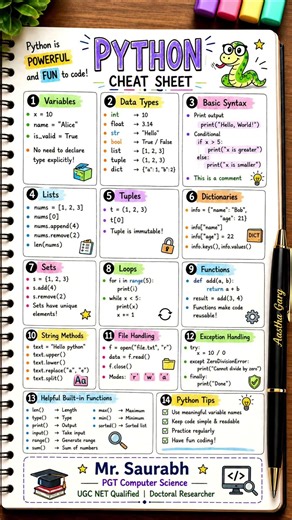 Python is
POWERFUL
and FUN to code!
PYTHON
CHEAT SHEET
1 Variables
• x = 10
• name = "Alice"
• is_valid = True
• No need to declare
type explicitly!
2 Data Types
• int → 10
• float → 3.14
• str → "Hello"
• bool → True / False
• list → [1, 2, 3]
• tuple → (1, 2, 3)
• dict → {"a": 1, "b": 2}
3 Basic Syntax
• Print output
print("Hello, World!")
• Conditional
if x > 5:
print("x is greater")
else:
print("x is smaller")
• # This is a comment
4 Lists
• nums = [1, 2, 3]
• nums[0]
• nums.append(4)
• nums.remove(2)
• len(nums)
5 Tuples
• t = (1, 2, 3)
• t[0]
Tuple is immutable!
6 Dictionaries
• info = {"name": "Bob",
"age": 21}
• info["name"]
• info["age"] = 22
• info.keys(), info.values()
DICT
7 Sets
• s = {1, 2, 3}
• s.add(4)
• s.remove(2)
Sets have unique
elements!
8 Loops
• for i in range(5):
print(i)
• while x < 5:
print(x)
x += 1
9 Functions
• def add(a, b):
return a + b
• result = add(3, 4)
Functions make code
reusable!
10 String Methods
• text = "Hello python"
• text.upper()
• text.lower()
• text.replace("a", "e")
• text.split()
Aa
11 File Handling
• f = open("file.txt", "r")
• data = f.read()
• f.close()
• Modes: r w a
12 Exception Handling
• try:
x = 10 / 0
• except ZeroDivisionError:
print("Cannot divide by zero")
• finally:
print("Done")
13 Helpful Built-in Functions
• len() → Length
• type() → Type
• print() → Output
• input() → Take input
• range() → Generate range
• sum() → Sum of numbers
• max() → Maximum
• min() → Minimum
• sorted() → Sorted list
14 Python Tips
Use meaningful variable names
Keep code simple & readable
Practice regularly
Have fun coding!
Mr. Saurabh
PGT Computer Science
UGC NET Qualified | Doctoral Researcher
Aastha Garg